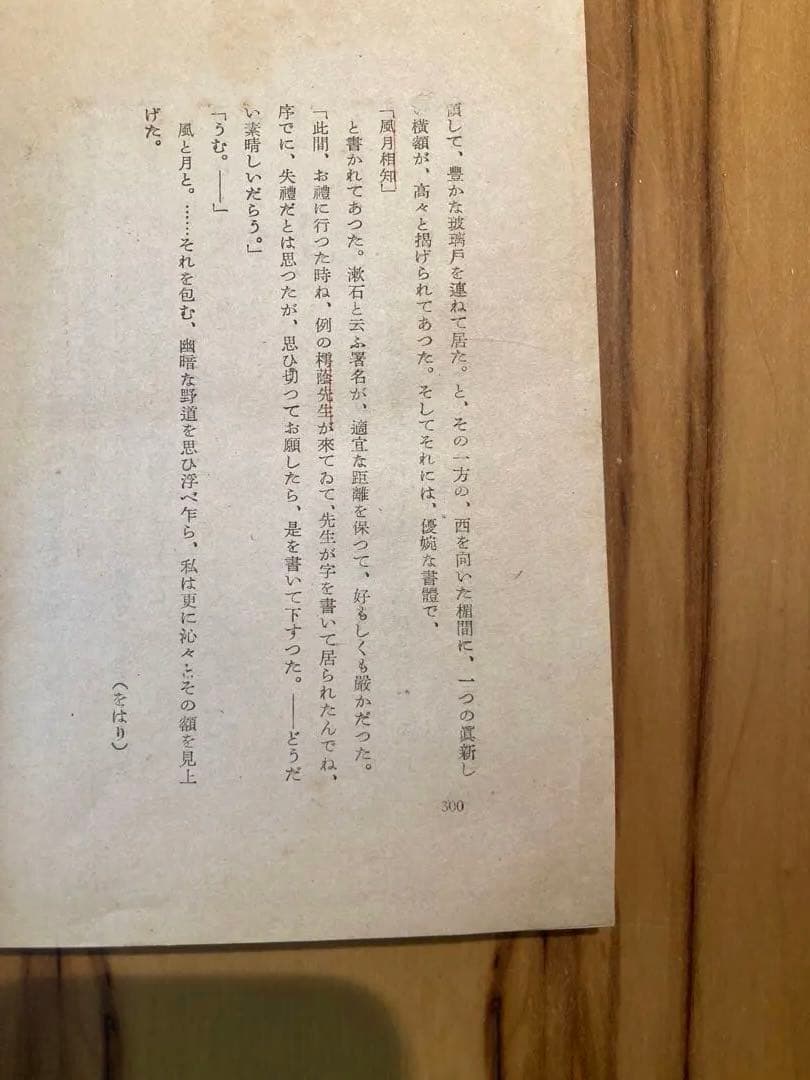 頭して、豊かな玻璃戸を連ねて居た。と、その一方の、西を向いた楣間に、一つの眞新し
い横額が、高々と揭げられてあつた。そしてそれには、優婉な書體で、
「風月相知」
と書かれてあつた。漱石と云ふ署名が、適宜な距離を保つて、好もしくも嚴かだつた。
「此間、お禮に行つた時ね、例の樗蔭先生が來てゐて、先生が字を書いて居られたんでね、
序でに、失禮だとは思つたが、思ひ切つてお願したら、是を書いて下すつた。――どうだ
い素晴しいだらう。」
「うむ。――」
風と月と。……それを包む、幽暗な野道を思ひ浮べ乍ら、私は更に沁々とその額を見上
げた。
（をはり）
300